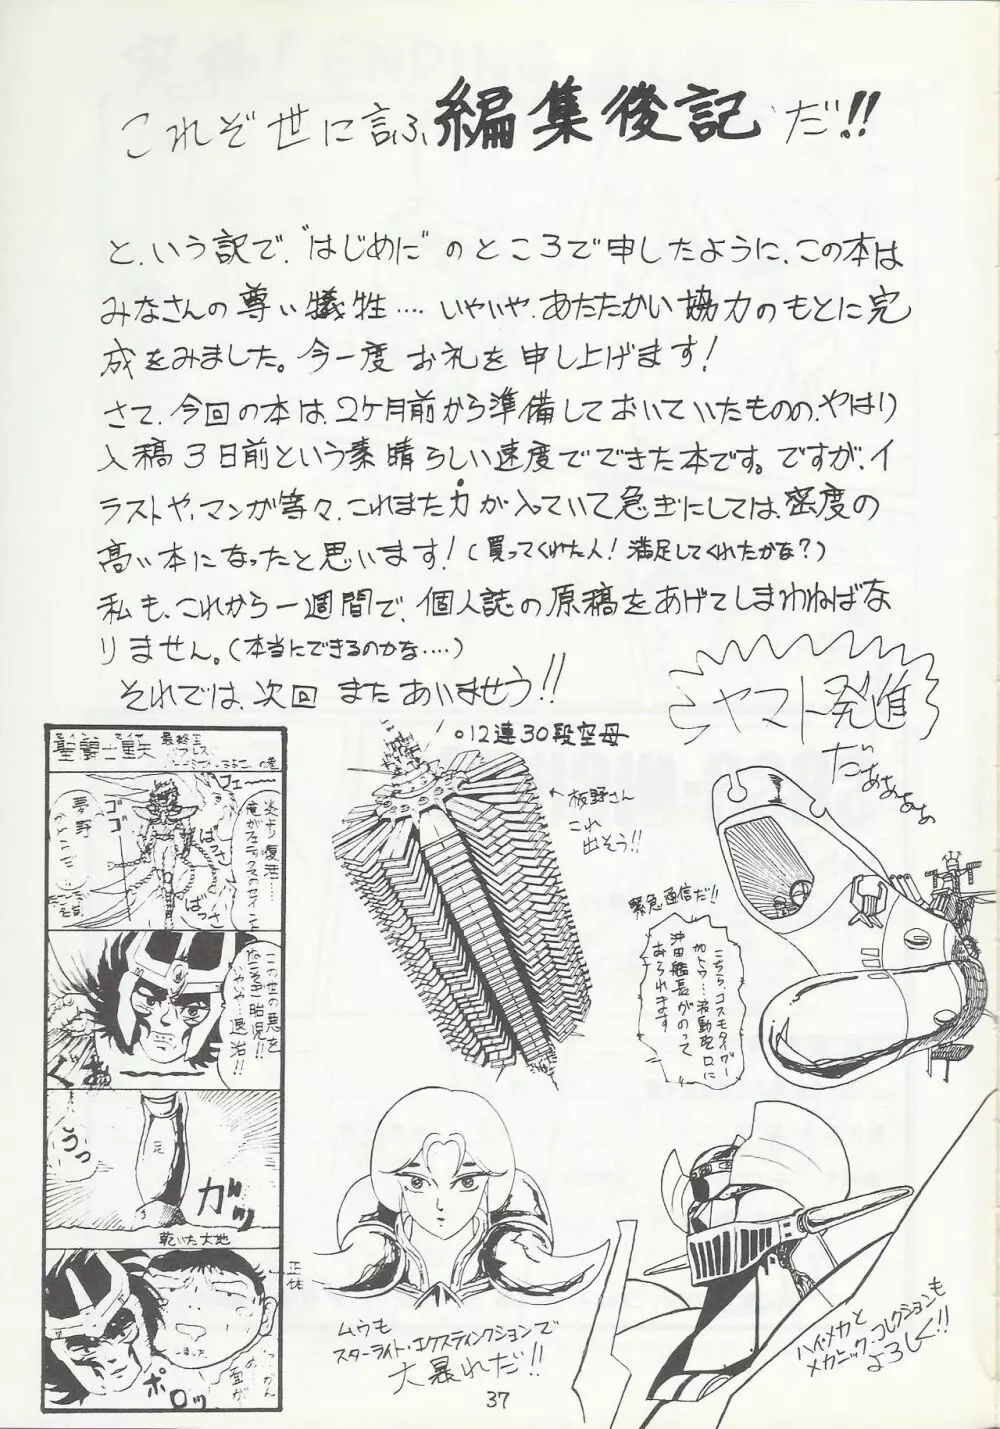 これぞ世に言ふ編集後記だ!!
と、いう訳で、“はじめに”のところで申したように、この本は
みなさんの尊い犠牲‥‥いやいや、あたたかい協力のもとに完
成をみました。今一度お礼を申し上げます!
さて、今回の本は、2ケ月前から準備しておいていたものの、やはり
入稿3日前という素晴らしい速度でできた本です。ですが、イ
ラストや、マンガ等々、これまた力が入っていて急ぎにしては、密度の
高い本になったと思います!(買ってくれた人!満足してくれたかな?)
私も、これから一週間で、個人誌の原稿をあげてしまわねばな
りません。(本当にできるのかな‥‥)
それでは、次回またあいませう!!
ヤマト発進
だああああ
聖闘士
最終
フェー
炎より復活‥‥
俺がフェニックスの
ゴゴゴ
ばっさ
ばっさ
この世の悪を
胎児!!
退治!!
うっ
ガッ
乾いた大地
正体
ポロッ
面が
○12連30段空母
←板野さん
これ
出そう!!
緊急通信だ!!
こちら、コスモタイガー
カトウ…波動砲口に
沖田艦長がのって
おられます
ムウも
スターライト・エクスティンクションで
大暴れだ!!
ハイ・メカと
メカニック・コレクションも
よろしく!!
37